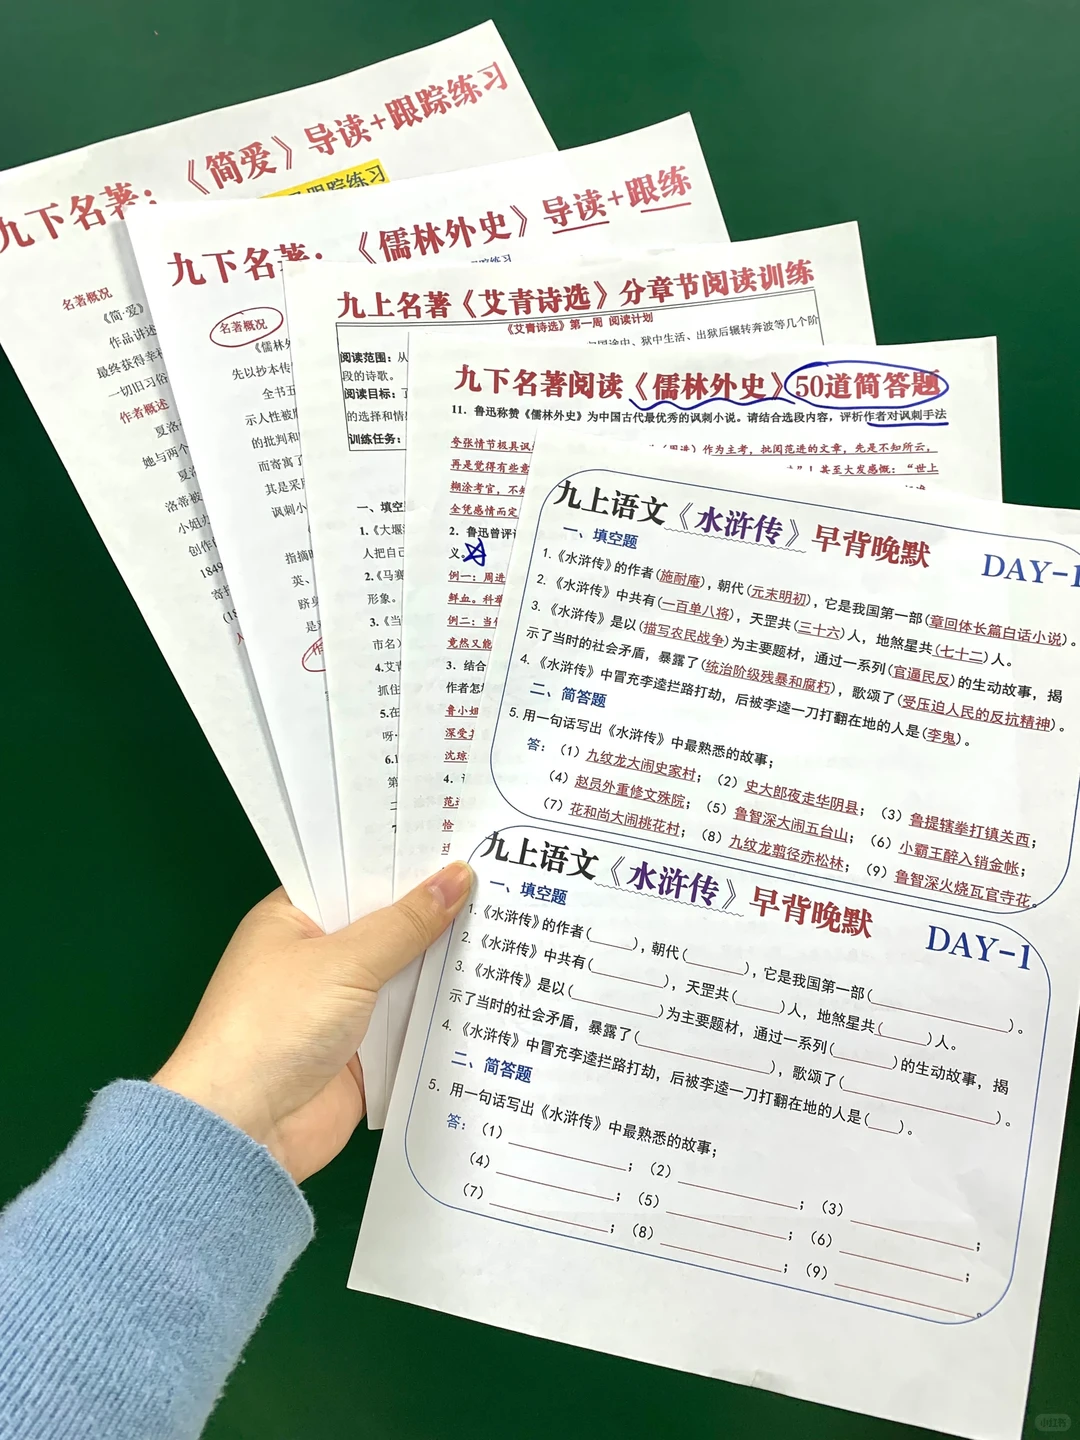 九下名著：《简爱》导读+跟踪练习
跟踪练习
名著概况
《简·爱》
作品讲述
最终获得幸福
一切旧习俗
作者概述
夏洛
她与两个
夏洛
洛蒂被
小姐
创作
1849
九下名著：《儒林外史》导读+跟练
名著概况
《儒林外
先以抄本传
全书五
示人性被腐
的批判和
而寄寓了
其是采用
讽刺小
指摘时
英、
跻身
是对
九上名著《艾青诗选》分章节阅读训练
《艾青诗选》第一周 阅读计划
阅读范围：从
国途中、狱中生活、出狱后辗转奔波等几个阶
段的诗歌。
阅读目标：了
的选择和情感
训练任务：
一、填空
1.《大堰河
人把自己
2.《马赛
形象。
3.《当
市名）
4.艾青
抓住
5.在
呀·
6.1
第
九下名著阅读《儒林外史》50道简答题
11. 鲁迅称赞《儒林外史》为中国古代最优秀的讽刺小说。请结合选段内容，评析作者对讽刺手法
夸张情节极具讽
作为主考，批阅范进的文章，先是不知所云，
再是觉得有些意
！甚至大发感慨：“世上
糊涂考官，不知
全凭感情而定
2. 鲁迅曾评
义。
例一：周进
鲜血。科举
例二：当
竟然又能
3、结合
作者怎
鲁小姐
深受
沈琼
4、
范进
恰
九上语文《水浒传》早背晚默
DAY-1
一、填空题
1. 《水浒传》的作者(施耐庵)，朝代(元末明初)，它是我国第一部(章回体长篇白话小说)。
2. 《水浒传》中共有(一百单八将)，天罡共(三十六)人，地煞星共(七十二)人。
3. 《水浒传》是以(描写农民战争)为主要题材，通过一系列(官逼民反)的生动故事，揭
示了当时的社会矛盾，暴露了(统治阶级残暴和腐朽)，歌颂了(受压迫人民的反抗精神)。
4. 《水浒传》中冒充李逵拦路打劫，后被李逵一刀打翻在地的人是(李鬼)。
二、简答题
5. 用一句话写出《水浒传》中最熟悉的故事；
答：（1）九纹龙大闹史家村；（2）史大郎夜走华阴县；（3）鲁提辖拳打镇关西；
（4）赵员外重修文殊院；（5）鲁智深大闹五台山；（6）小霸王醉入销金帐；
（7）花和尚大闹桃花村；（8）九纹龙翦径赤松林；（9）鲁智深火烧瓦官寺花。
九上语文《水浒传》早背晚默
DAY-1
一、填空题
1. 《水浒传》的作者(____)，朝代(____)，它是我国第一部(____)。
2. 《水浒传》中共有(____)，天罡共(____)人，地煞星共(____)人。
3. 《水浒传》是以(____)为主要题材，通过一系列(____)的生动故事，揭
示了当时的社会矛盾，暴露了(____)，歌颂了(____)。
4. 《水浒传》中冒充李逵拦路打劫，后被李逵一刀打翻在地的人是(____)。
二、简答题
5. 用一句话写出《水浒传》中最熟悉的故事；
答：（1）____；（2）____；（3）____；
（4）____；（5）____；（6）____；
（7）____；（8）____；（9）____。
小红书